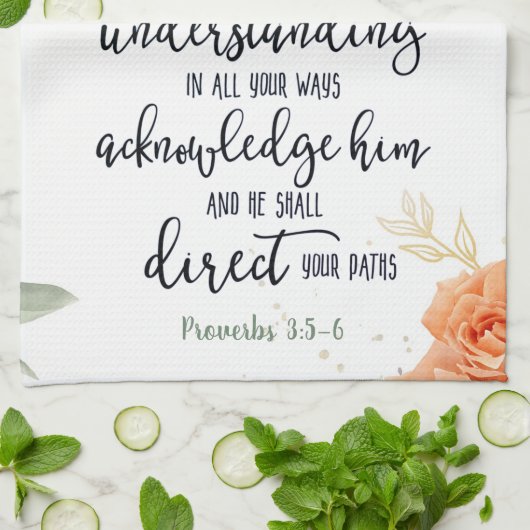 understanding
IN ALL YOUR WAYS
acknowledge him
AND HE SHALL
direct YOUR PATHS
Proverbs 3:5-6